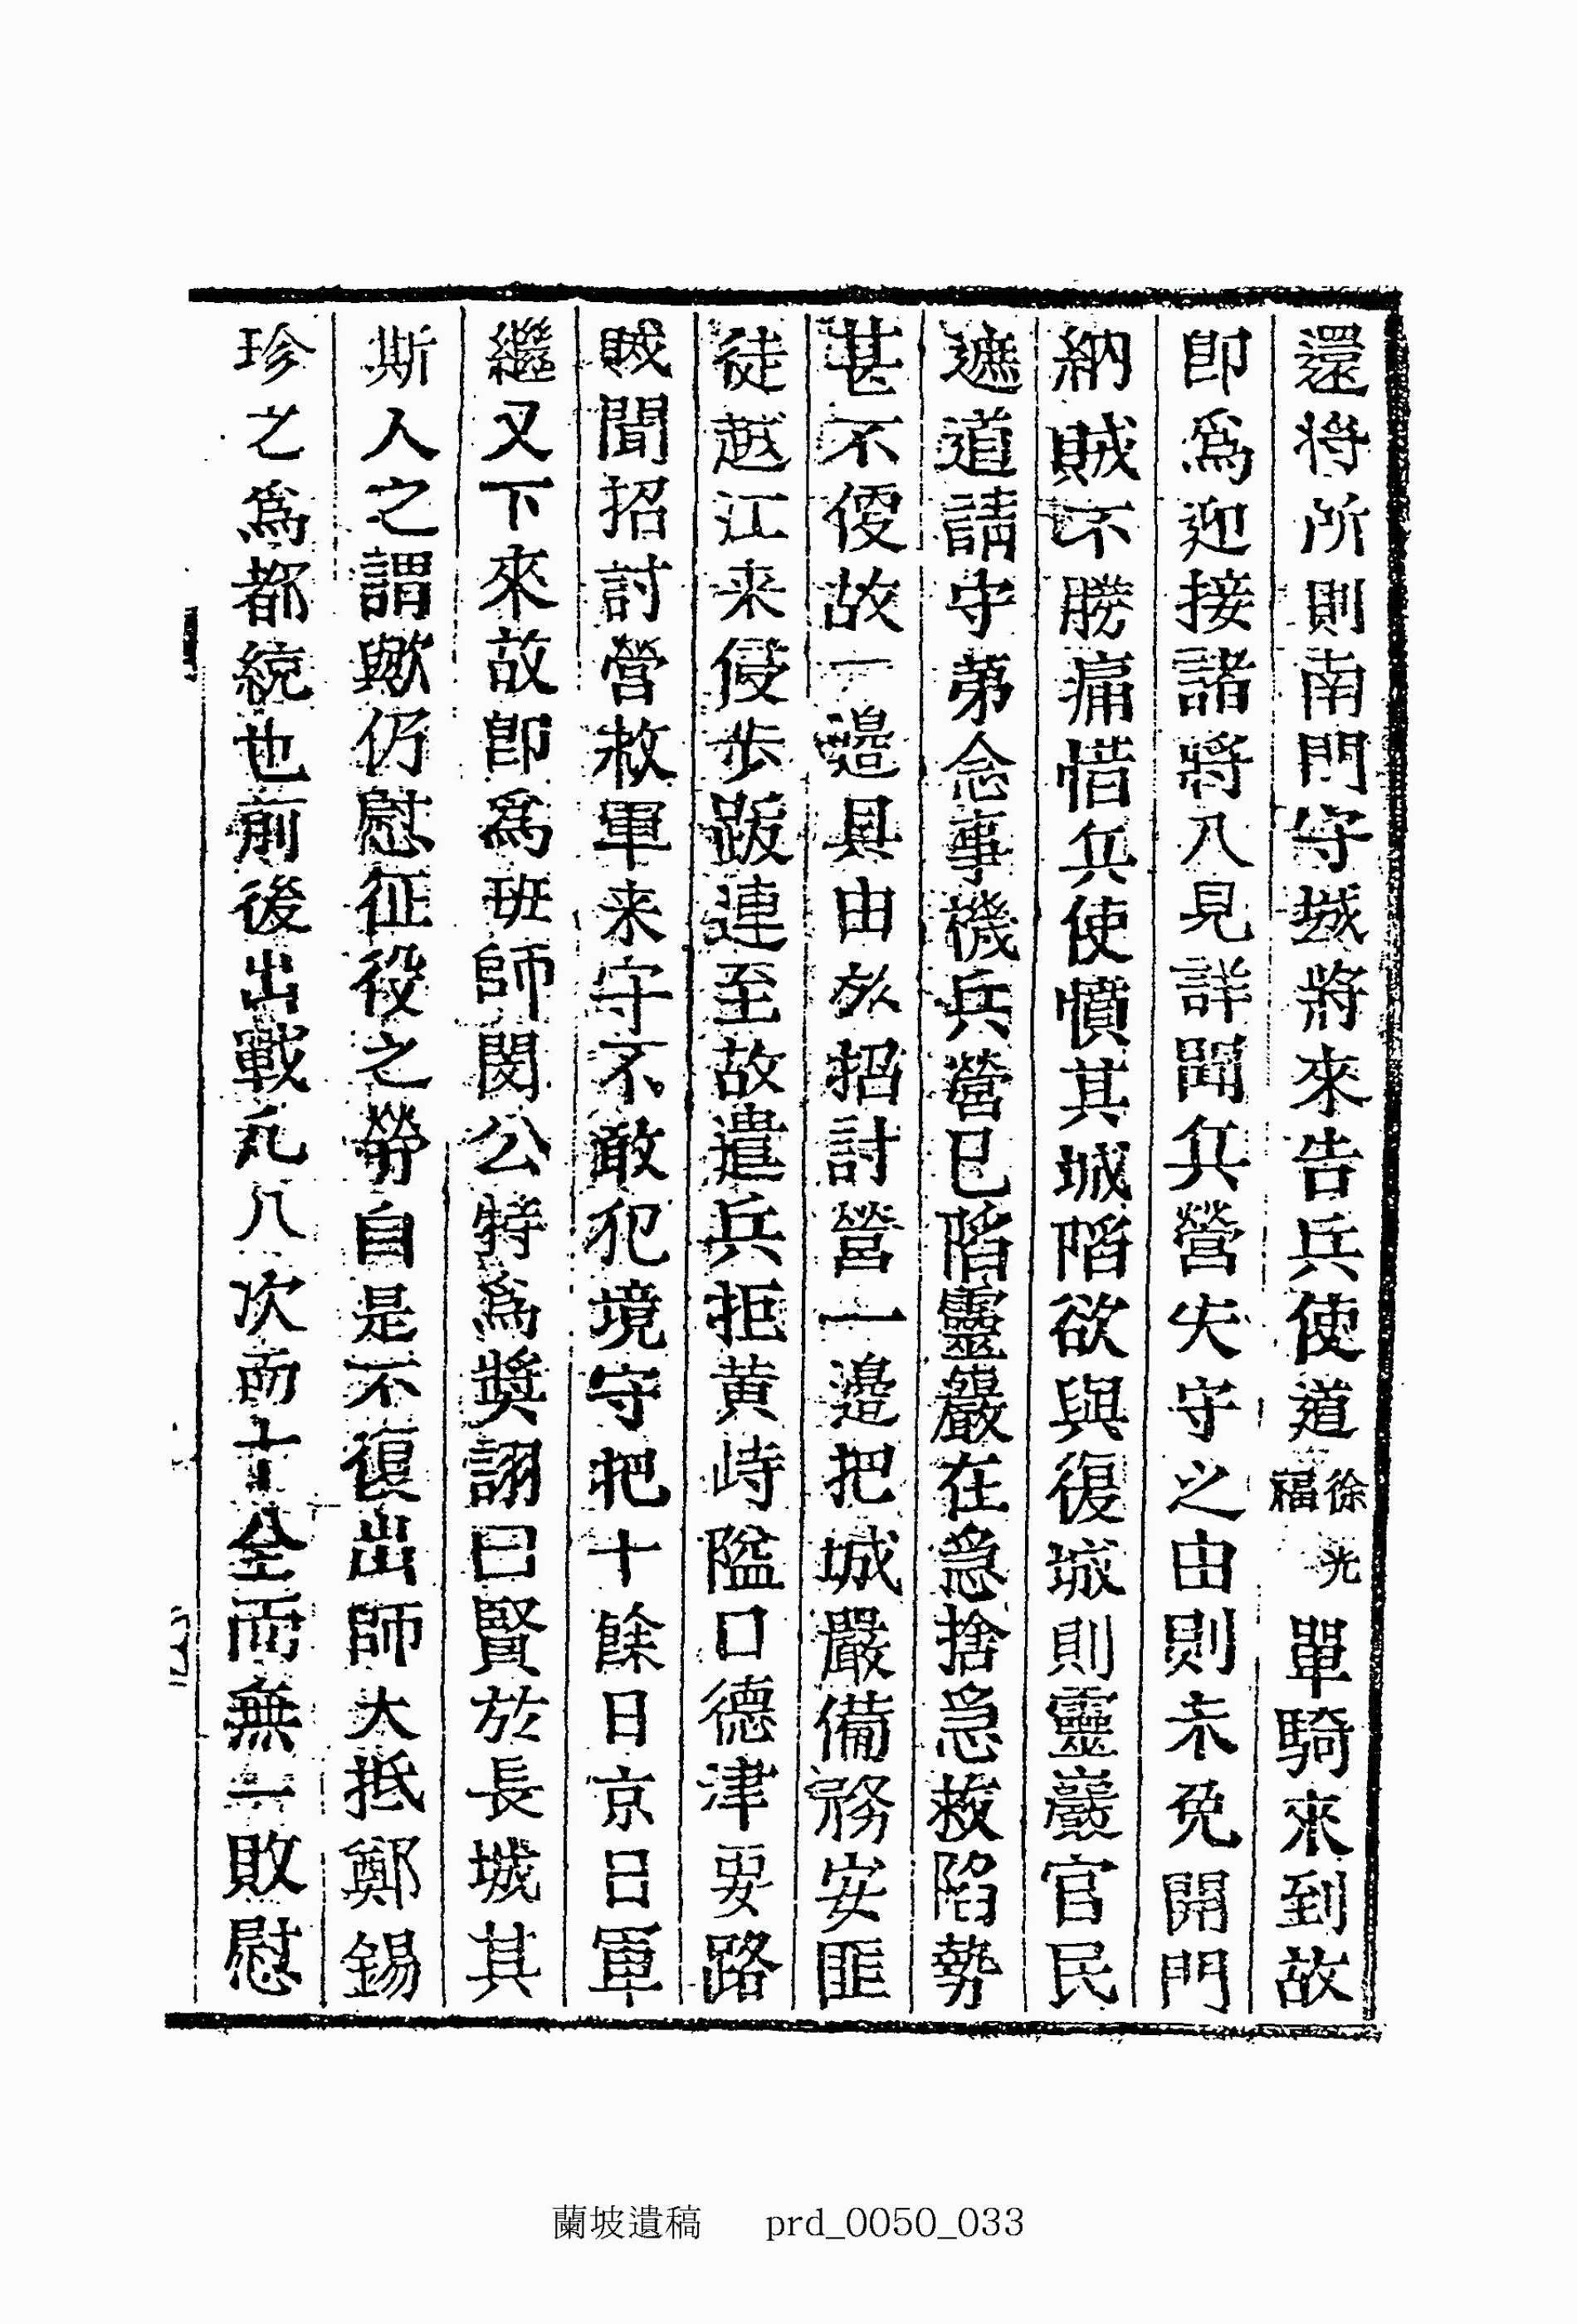 還將所則南門守城將來告兵使道徐光福單騎來到故
卽爲迎接諸將入見詳聞兵營失守之由則未免開門
納賊不勝痛惜兵使憤其城陷欲與復城則靈巖官民
遮道請守第念事機兵營已陷靈巖在急捨急救陷勢
甚不便故一邊具由於招討營一邊把城嚴備務安匪
徒越江来侵步跋連至故遣兵拒黄峙隘口德津要路
賊聞招討營救軍来守不敢犯境守把十餘日京日軍
繼又下來故卽爲班師閔公特爲獎詡曰賢於長城其
斯人之謂歟仍慰征役之勞自是不復出師大抵鄭錫
珍之爲都統也前後出戰凡八次而十全而無一敗慰
蘭坡遺稿 prd_0050_033